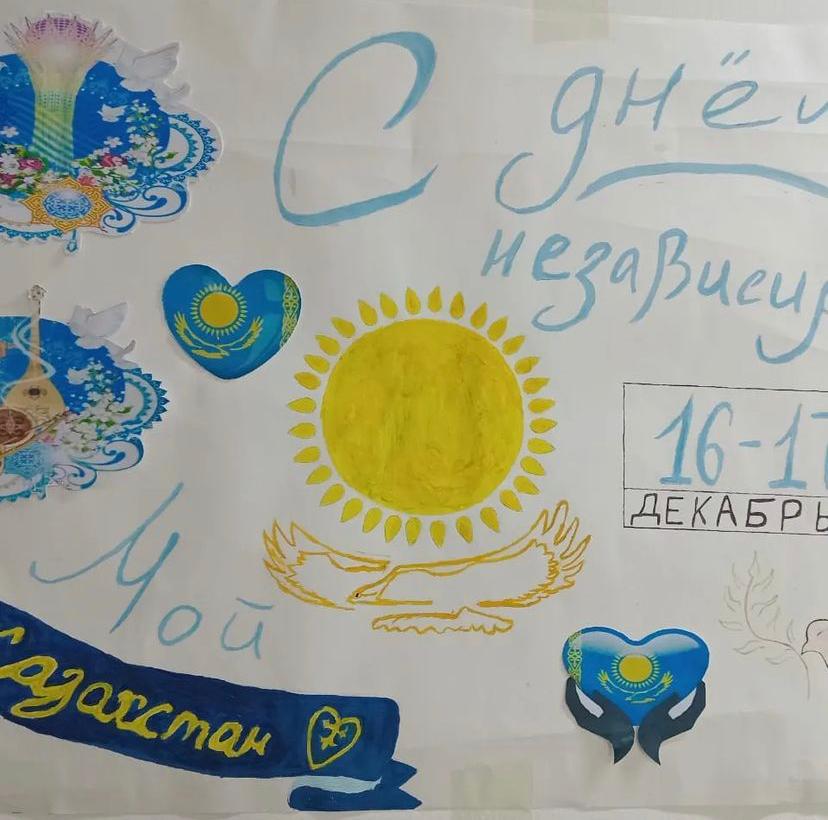 С днём
независим
16-17
ДЕКАБРЬ
Мой
Казахстан